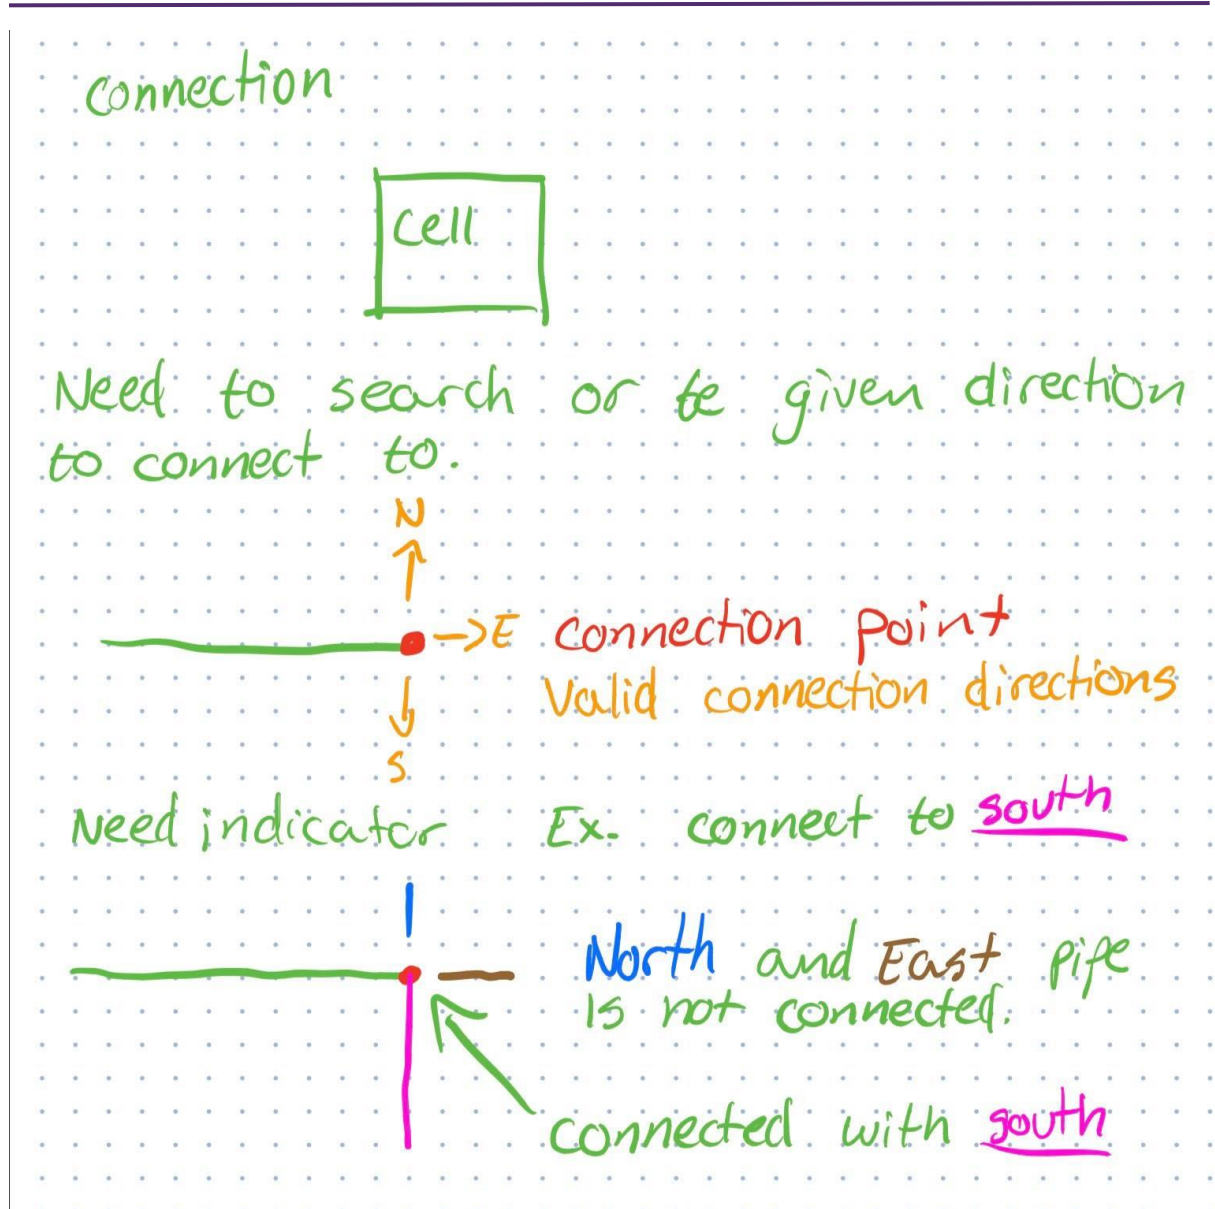 connection
cell
Need to search or be given direction
to connect to.
N
E connection point
Valid connection directions
S
Need indicator Ex. connect to south
North and East pipe
is not connected.
connected with south